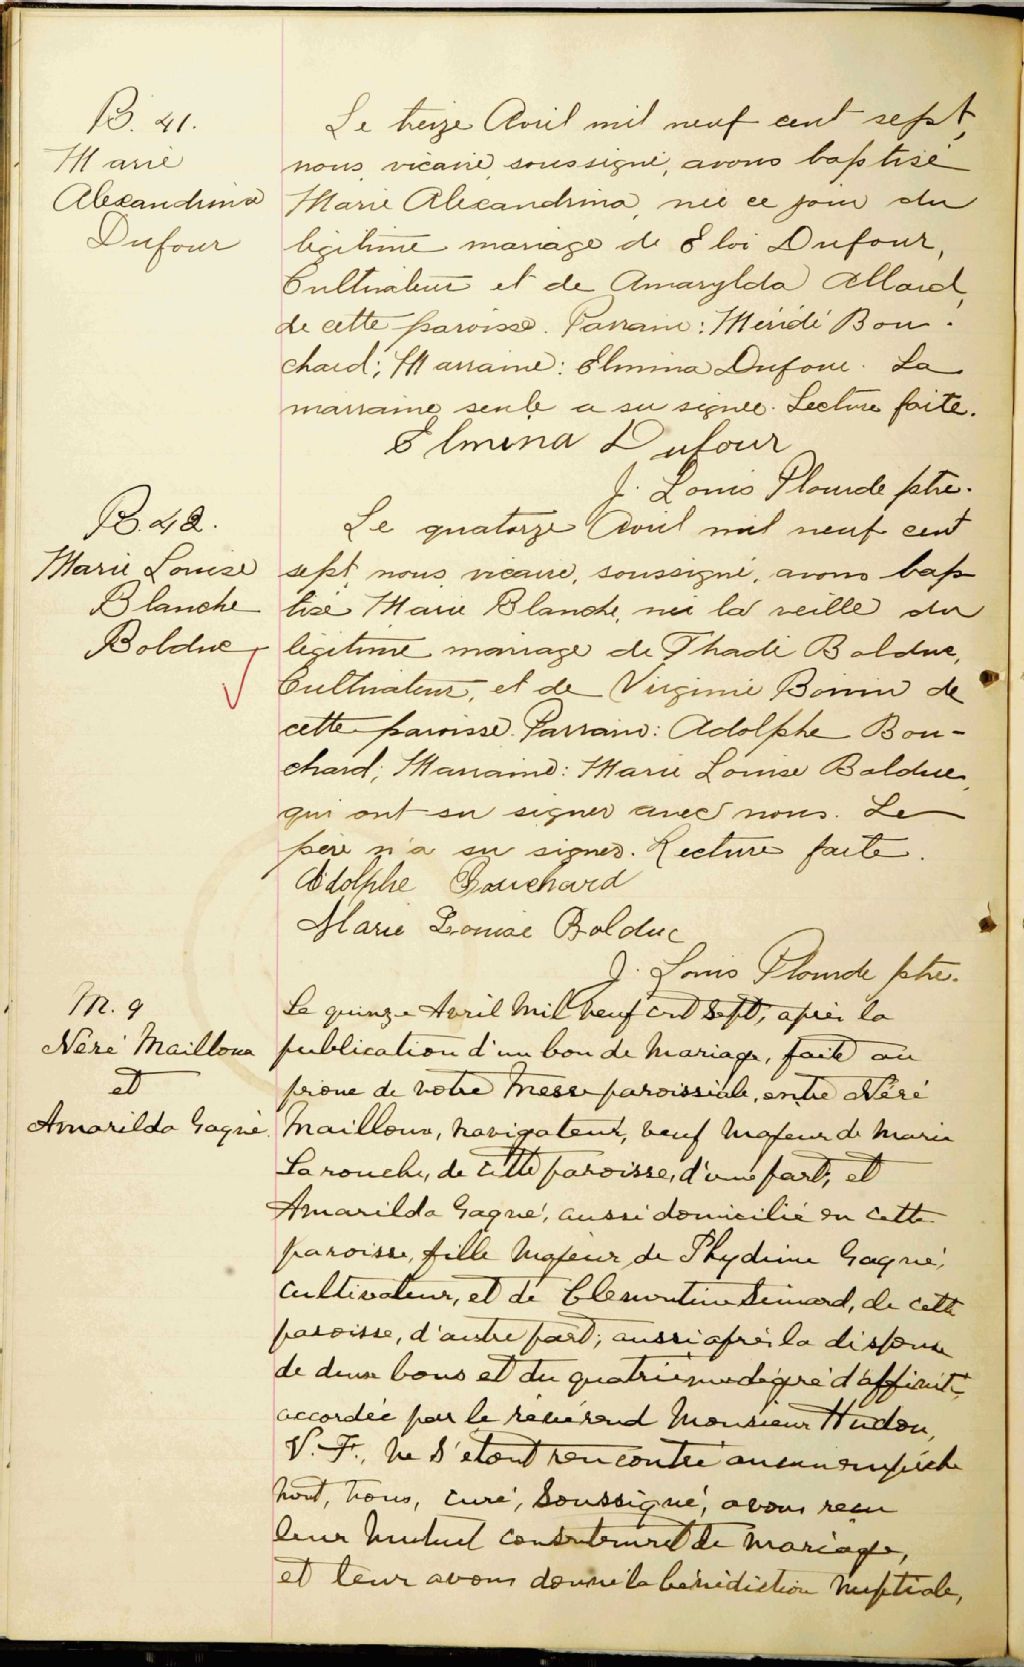 B. 41.
Marie
Alexandrina
Dufour
Le treize Avril mil neuf cent sept,
nous, vicaire, soussigné, avons baptisé
Marie Alexandrina, née ce jour du
légitime mariage de Eloi Dufour,
Cultivateur et de Amarylda Allard,
de cette paroisse. Parrain: Méridé Bou-
chard; Marraine: Elmina Dufour. La
marraine seule a su signer. Lecture faite.
Elmina Dufour
J. Louis Plourde ptre.
B. 42.
Marie Louise
Blanche
Bolduc
Le quatorze Avril mil neuf cent
sept, nous, vicaire, soussigné, avons bap
tisé Marie Blanche, née la veille du
légitime mariage de Thadé Bolduc,
Cultivateur, et de Virginie Boivin de
cette paroisse. Parrain: Adolphe Bou-
chard; Marraine: Marie Louise Bolduc,
qui ont su signer avec nous. Le
père n'a su signer. Lecture faite.
Adolphe Bouchard
Marie Louise Bolduc
J. Louis Plourde ptre.
M. 9
Néré Mailloux
et
Amarilda Gagné
Le quinze Avril mil neuf cent sept, après la
publication d'un ban de mariage, faite au
prône de notre Messe paroissiale, entre Néré
Mailloux, navigateur, veuf majeur de Marie
Larouche, de cette paroisse, d'une part; et
Amarilda Gagné, aussi domicilié en cette
paroisse, fille majeur de Phydime Gagné,
cultivateur, et de Clémentine Simard, de cette
paroisse, d'autre part; aussi après la dispense
de deux bans et du quatrième degré d'affinité,
accordée par le révérend Monsieur Hudon,
V. F., ne s'étant rencontré aucun empêche
ment, nous, curé, soussigné, avons reçu
leur mutuel consentement de mariage,
et leur avons donné la bénédiction nuptiale,